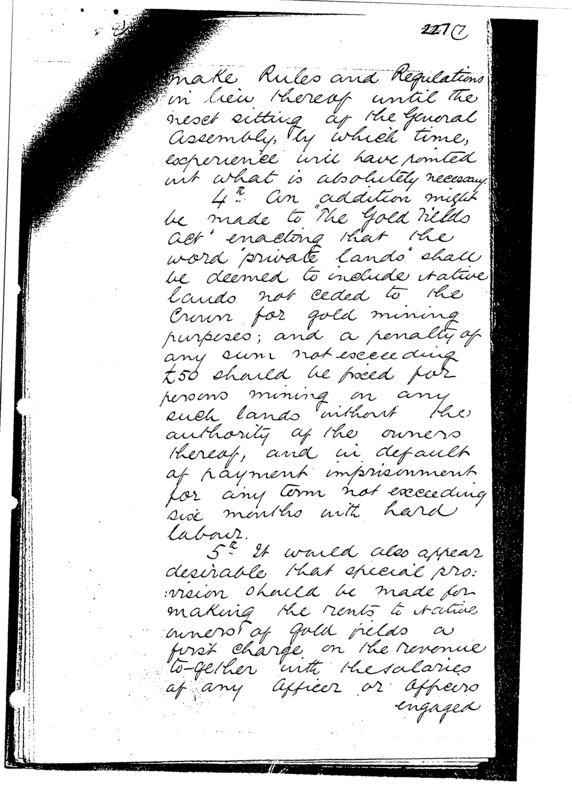 227
make Rules and Regulations
in lieu thereof until the
next sitting of the General
Assembly, by which time,
experience will have pointed
out what is absolutely necessary.
4th An addition might
be made to "The Gold Fields
Act" enacting that the
word "private lands" shall
be deemed to include Native
lands not ceded to the
Crown for gold mining
purposes; and a penalty of
any sum not exceeding
£50 should be fixed for
persons mining on any
such lands without the
authority of the owners
thereof, and in default
of payment imprisonment
for any term not exceeding
six months with hard
labour.
5th It would also appear
desirable that special pro:
:vision should be made for
making the rents to Native
owners of gold fields a
first charge on the revenue
to-gether with the salaries
of any Officer or Officers
engaged